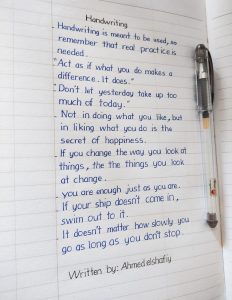 Handwriting
- Handwriting is meant to be used, so
remember that real practice is
needed.
- "Act as if what you do makes a
difference. It does."
- "Don't let yesterday take up too
much of today."
- Not in doing what you like, but
in liking what you do is the
secret of happiness.
- If you change the way you look at
things, the the things you look
at change.
- you are enough just as you are.
- If your ship doesn't come in,
swim out to it.
- It doesn't matter how slowly you
go as long as you don't stop.
Written by: Ahmed elshafiy